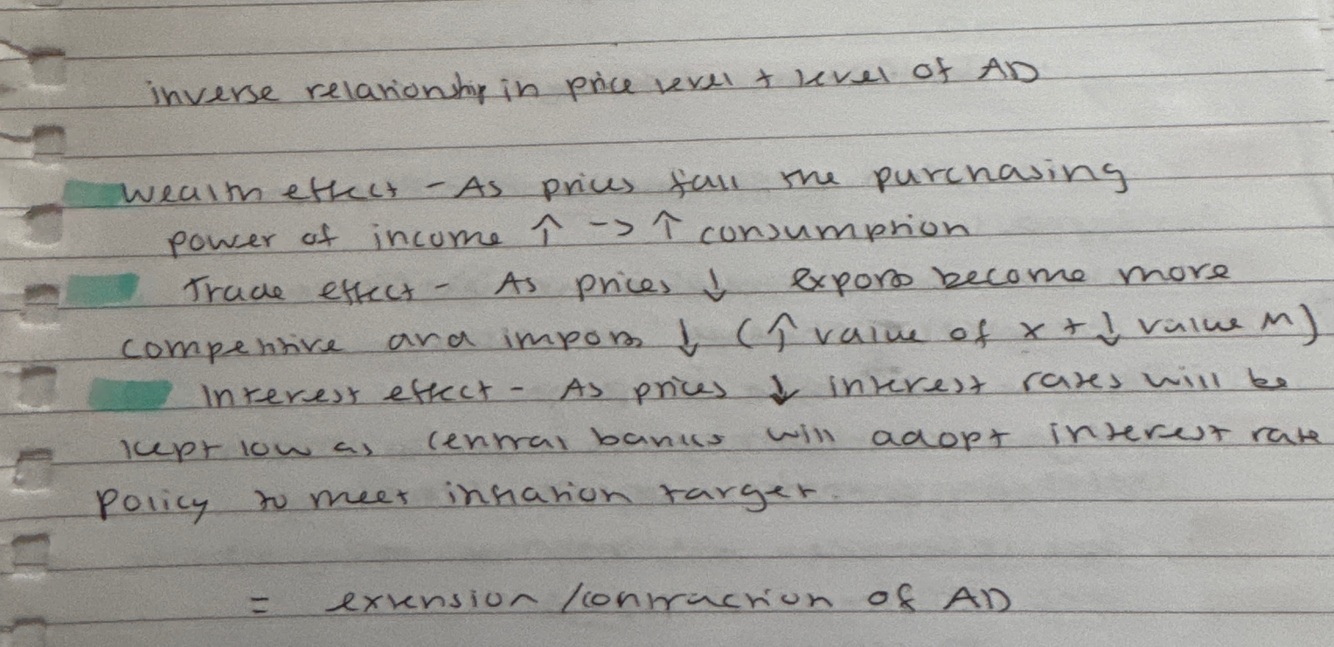 inverse relationship in price level + level of AD
Wealth effect - As prices fall the purchasing
power of income ↑ -> ↑ consumption
Trade effect - As prices ↓ exports become more
competitive and imports ↓ (↑ value of x + ↓ value M)
Interest effect - As prices ↓ interest rates will be
kept low as central banks will adopt interest rate
policy to meet inflation target.
= extension / contraction of AD